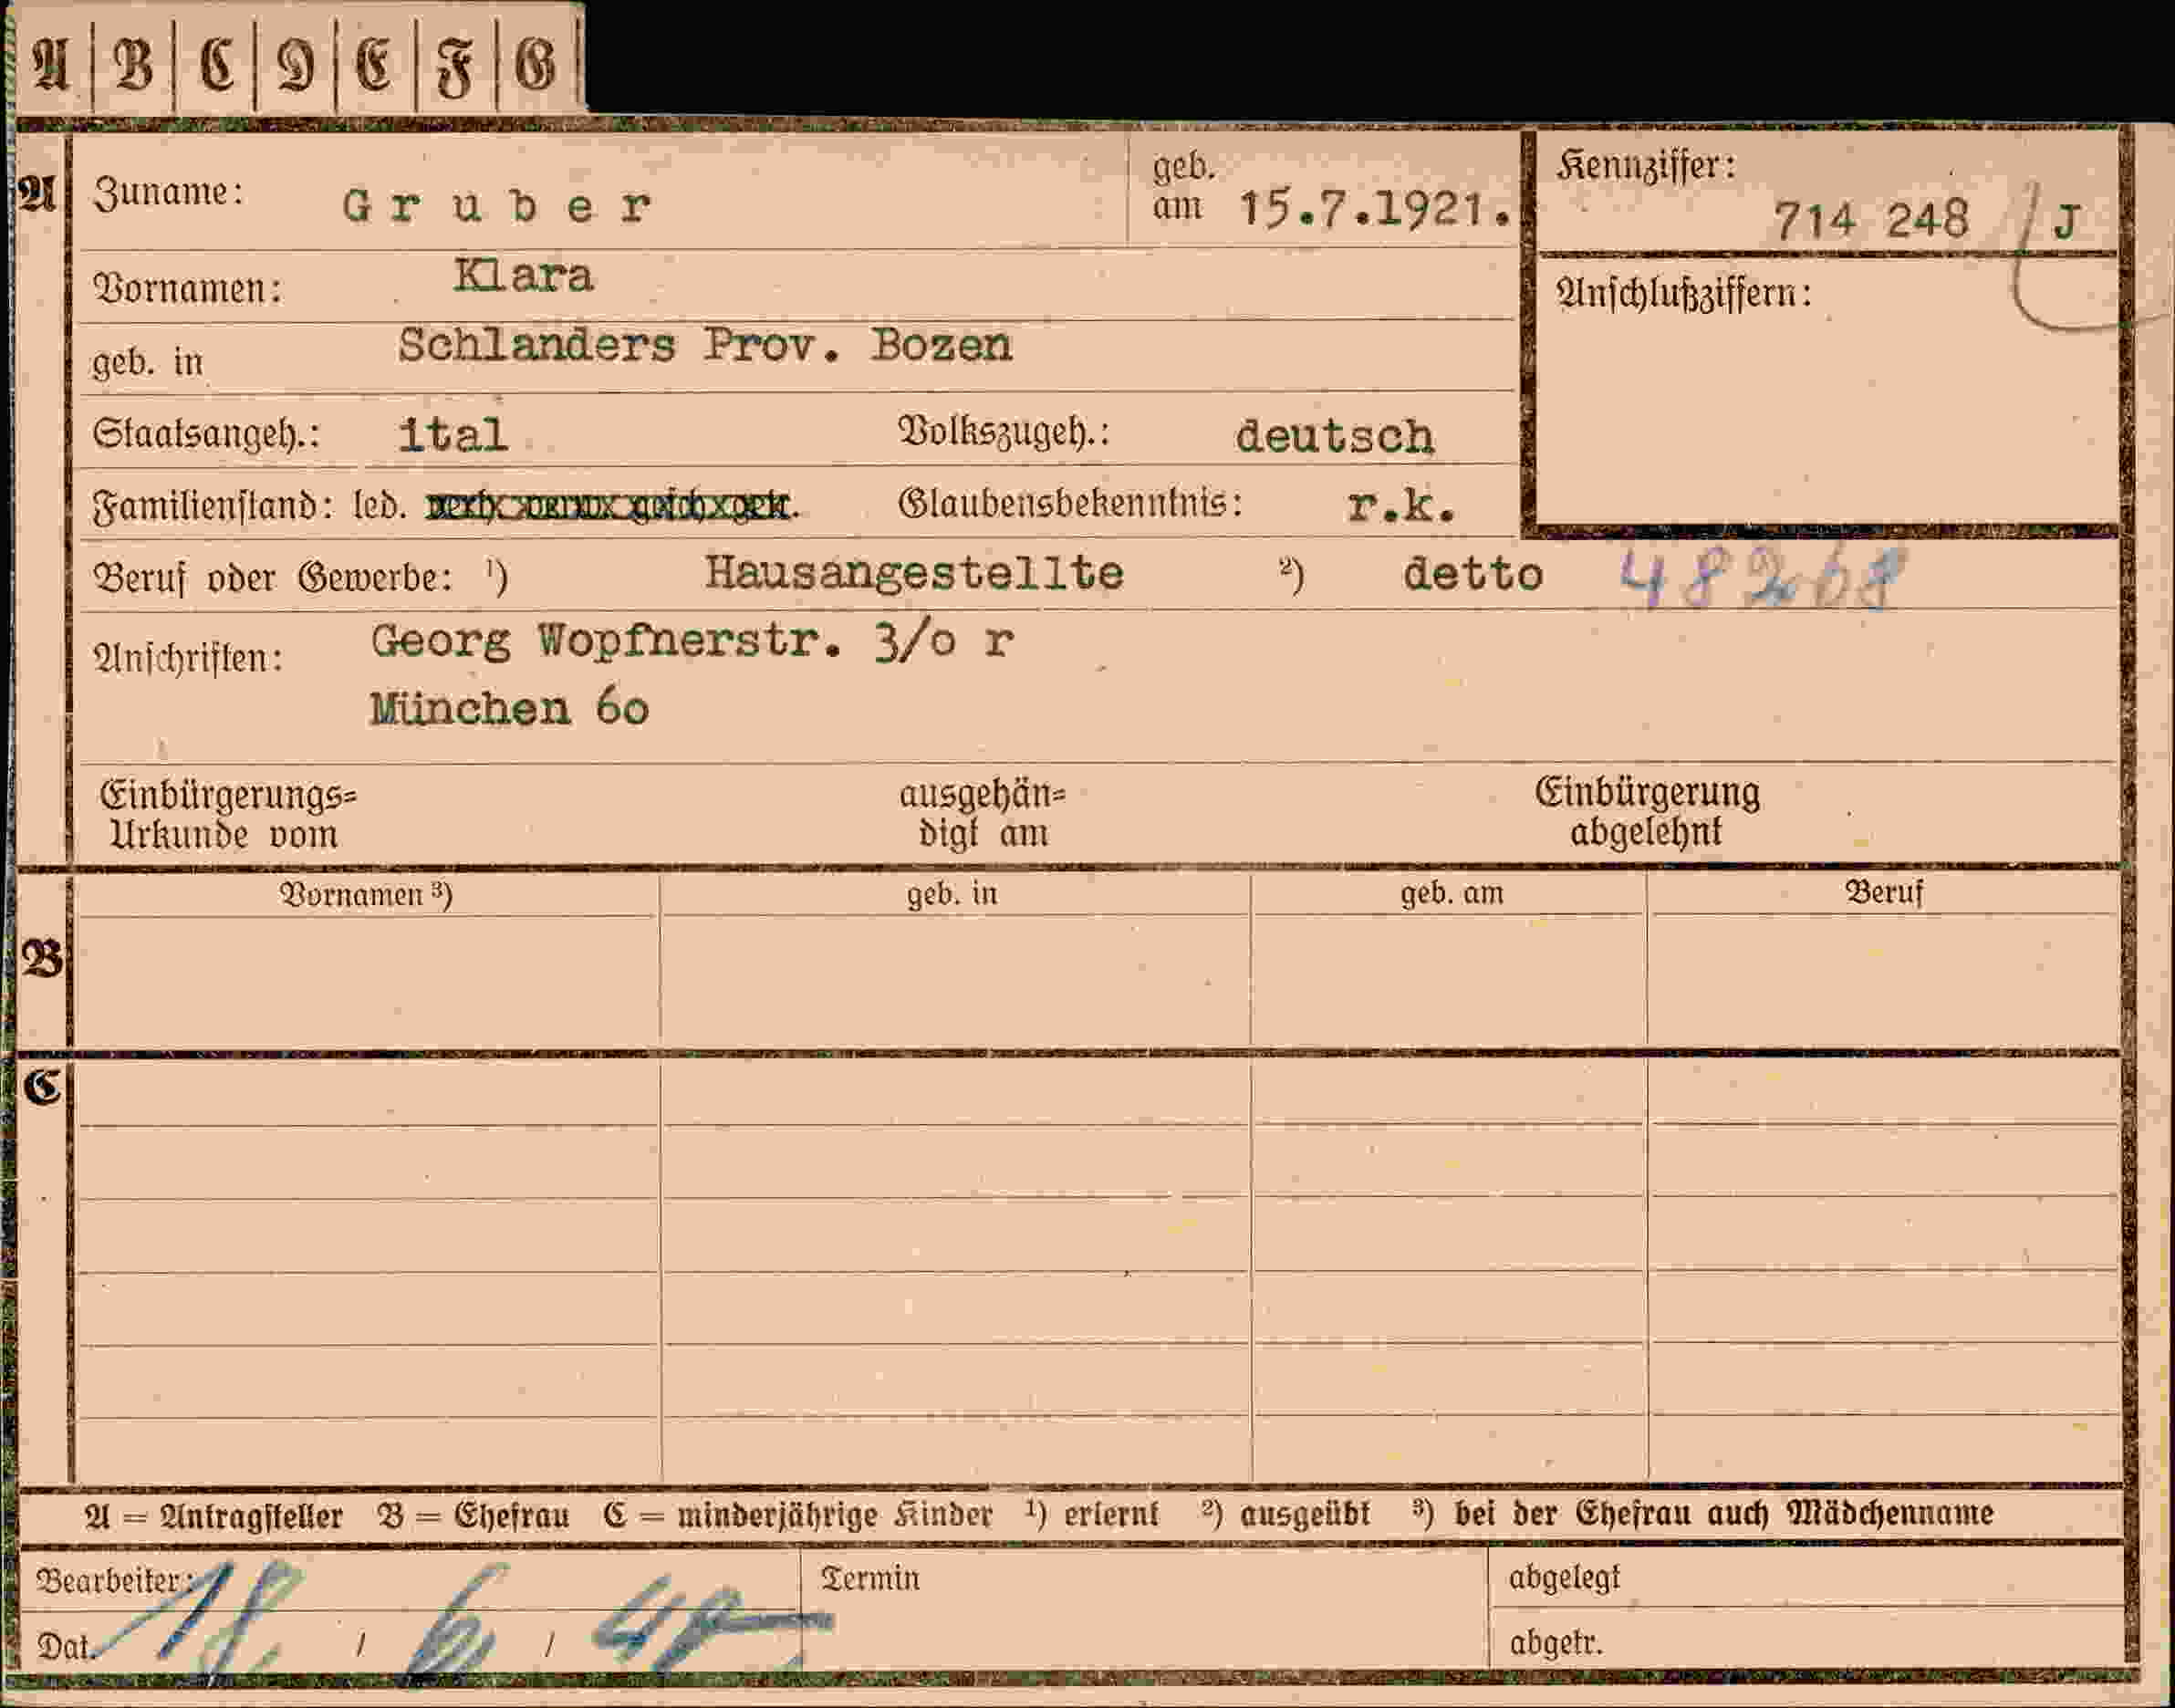 A B C D E F G
A Zuname: Gruber geb. am 15.7.1921. Kennziffer: 714 248 / J
Vornamen: Klara Anschlußziffern:
geb. in Schlanders Prov. Bozen
Staatsangeh.: ital Volkszugeh.: deutsch
Familienstand: led. Glaubensbekenntnis: r.k.
Beruf oder Gewerbe: ¹) Hausangestellte ²) detto 48268
Anschriften: Georg Wopfnerstr. 3/o r
München 60
Einbürgerungs= ausgehän= Einbürgerung
Urkunde vom digt am abgelehnt
Vornamen ³) geb. in geb. am Beruf
B
C
A = Antragsteller B = Ehefrau C = minderjährige Kinder ¹) erlernt ²) ausgeübt ³) bei der Ehefrau auch Mädchenname
Bearbeiter: Termin abgelegt
Dat. 18. / 6. / 40 abgetr.